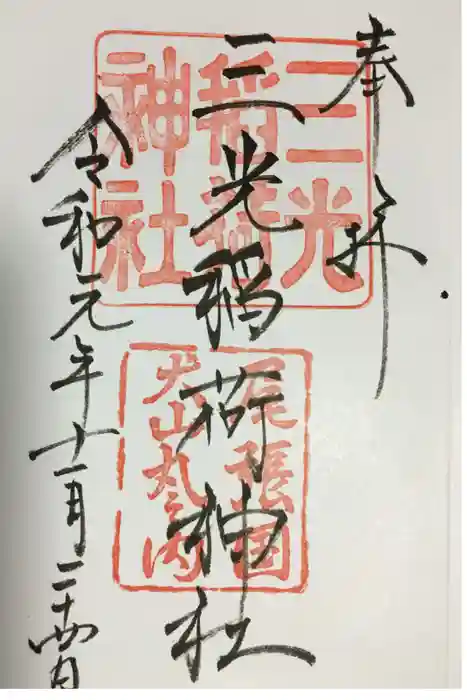 奉拝
三光稲荷神社
三光稲荷神社
尾張国犬山丸之内
令和元年十一月二十四日